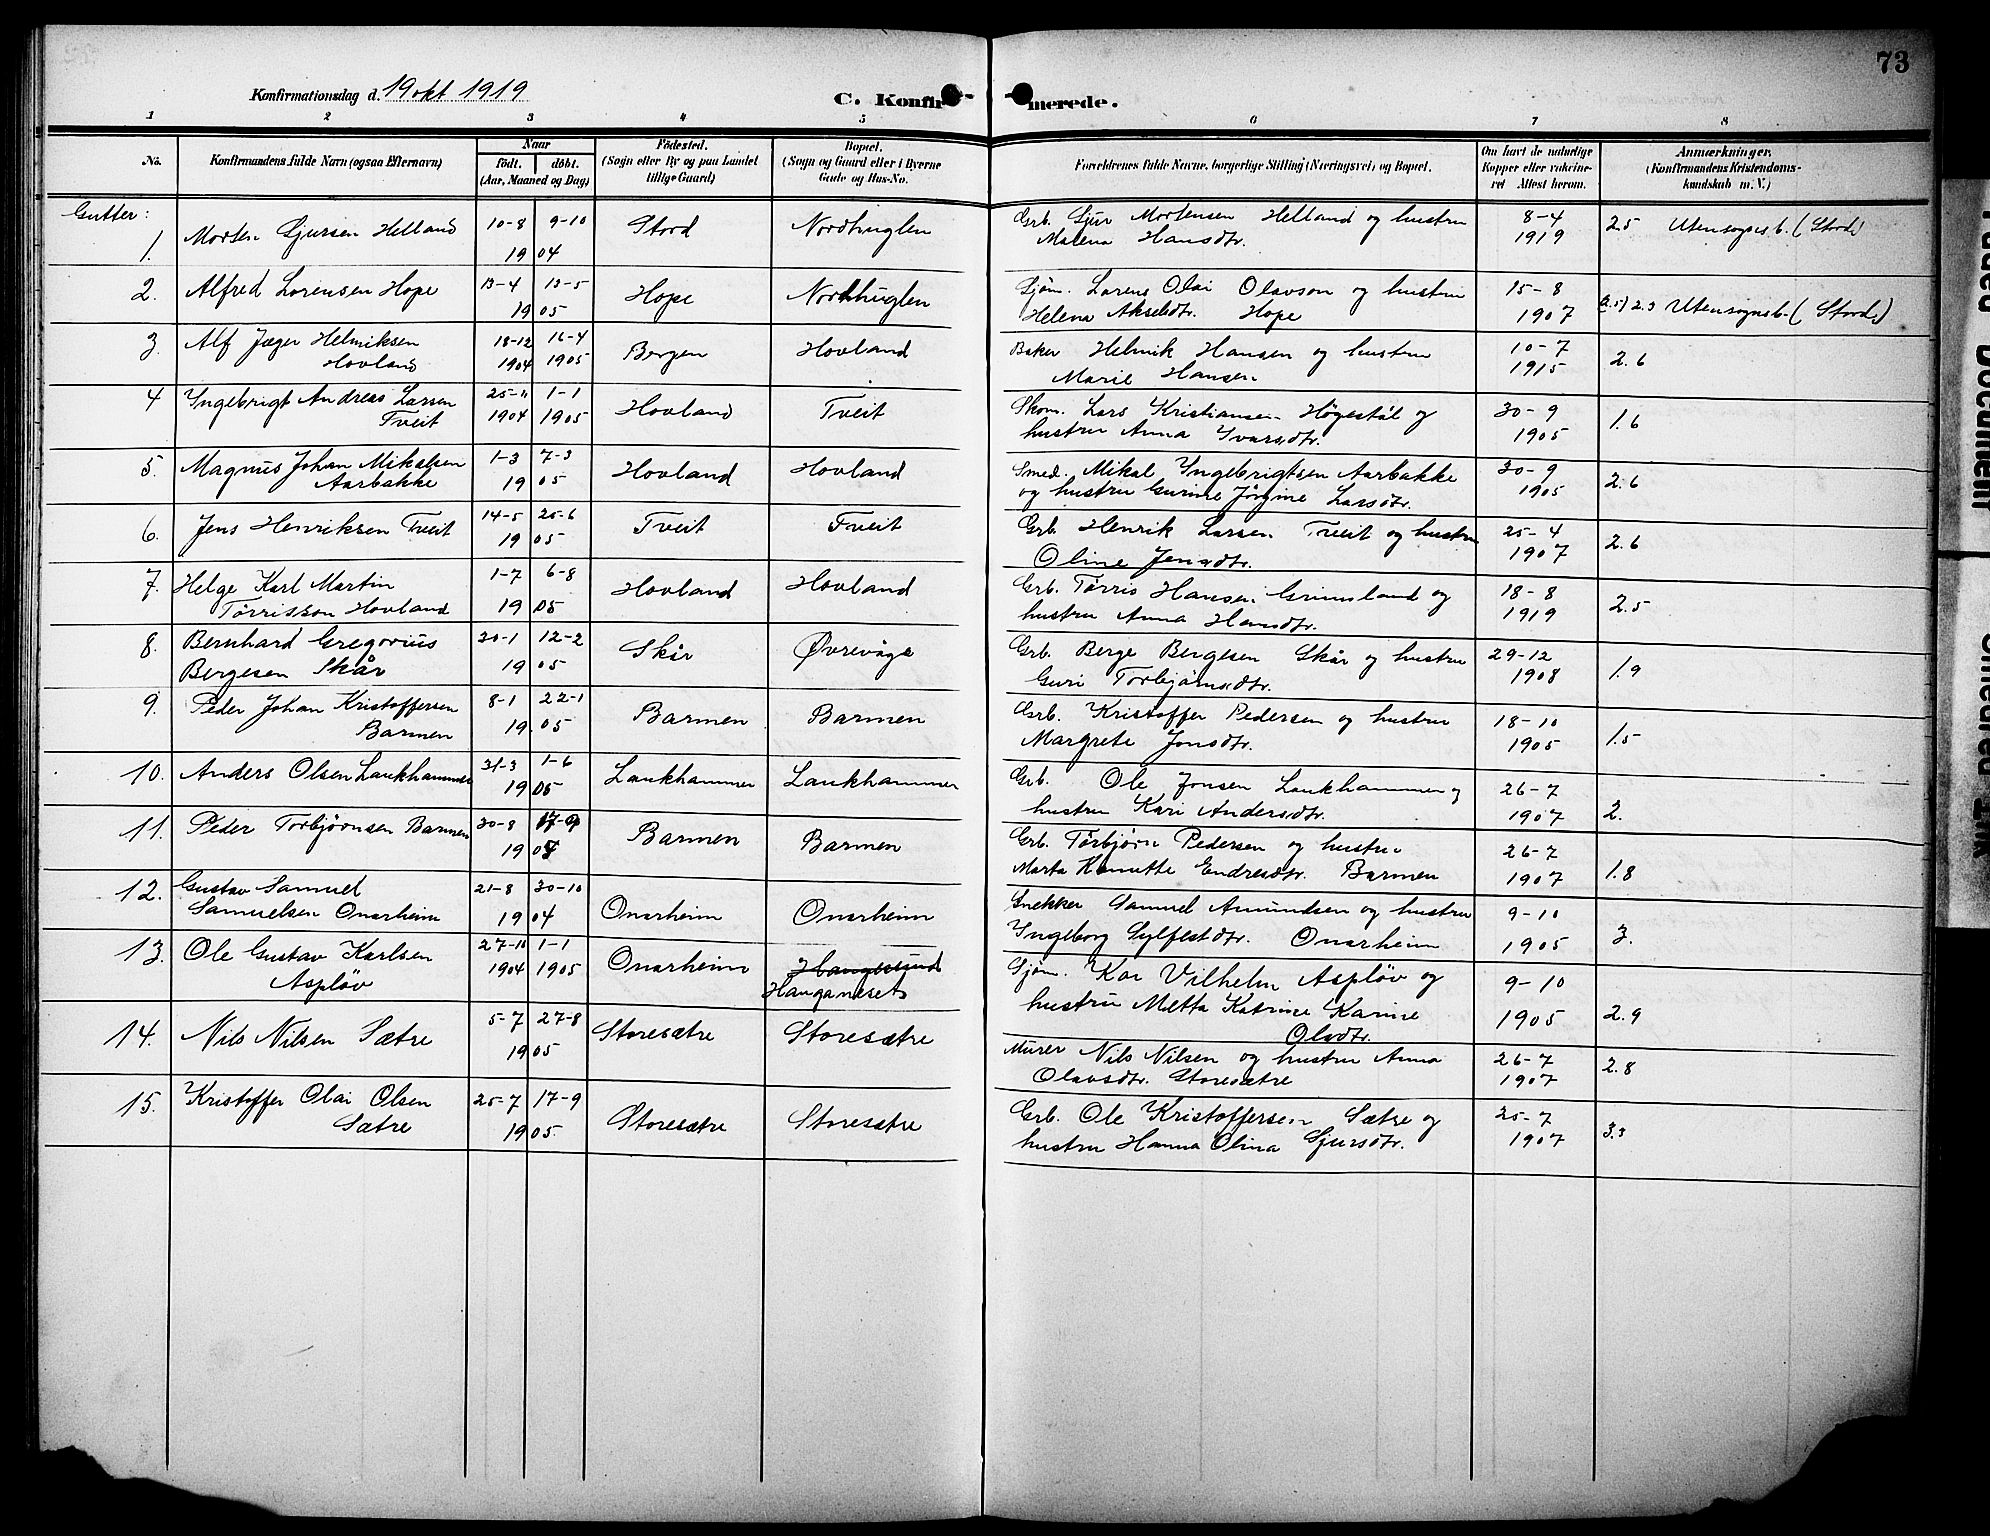 73
Konfirmationsdag d. 19 okt 1919
C. Konfirmerede.
1 2 3 4 5 6 7 8
No. Konfirmandens fulde Navn (ogsaa Efternavn) Naar født. døbt. (Aar, Maaned og Dag) Fødested. (Sogn eller By og paa Landet tillige Gaard) Bopæl. (Sogn og Gaard eller i Byerne Gade og Hus-No. Forældrenes fulde Navne, borgerlige Stilling (Næringsvei) og Bopæl. Om havt de naturlige Kopper eller vakcineret Attest herom. Anmærkninger. (Konfirmandens Kristendomskundskab m. V.)
Gutter:
1. Morten Sjursen Helland 10-8 9-10 1904 Stord Nordhuglen Grb. Sjur Mortensen Helland og hustru Malena Hansdtr. 8-4 1919 2.5 Utensognsb. (Stord)
2. Alfred Lorensen Hope 13-4 13-5 1905 Hope Nordhuglen Sjøm. Lorens Olai Olavson og hustru Helena Akselsdtr. Hope 15-8 1907 (2.5) 2.3 Utensognsb. (Stord)
3. Alf Jæger Helmiksen Hovland 18-12 1904 16-4 1905 Bergen Hovland Baker Helmik Hansen og hustru Marie Hansen 10-7 1915 2.6
4 Yngebrigt Andreas Larsen Tveit 25-11 1904 1-1 1905 Hovland Tveit Skom. Lars Kristiansen Høgestøl og hustru Anna Ivarsdtr. 30-9 1905 1.6
5. Magnus Johan Mikalsen Aarbakke 1-3 7-3 1905 Hovland Hovland Smed. Mikal Yngebrigtsen Aarbakke og hustru Gurine Jørgine Larsdtr. 30-9 1905 2.6
6. Jens Henriksen Tveit 14-5 25-6 1905 Tveit Tveit Grb. Henrik Larsen Tveit og hustru Oline Jensdtr. 25-4 1907 2.6
7. Helge Karl Martin Tørrisson Hovland 1-7 6-8 1905 Hovland Hovland Grb. Tørris Hansen Grimsland og hustru Anna Hansdtr. 18-8 1919 2.5
8. Bernhard Gregorius Bergesen Skår 20-1 12-2 1905 Skår Øvrevåge Grb. Berge Bergesen Skår og hustru Guri Torbjørnsdtr. 29-12 1908 1.9
9. Peder Johan Kristoffersen Barmen 8-1 22-1 1905 Barmen Barmen Grb. Kristoffer Pedersen og hustru Margrete Jonsdtr. 18-10 1905 1.5
10. Anders Olsen Laukhammer 31-3 1-6 1905 Laukhammer Laukhammer Grb. Ole Jonsen Laukhammer og hustru Kari Andersdtr. 26-7 1907 2.
11. Peder Torbjørnsen Barmen 30-8 17-9 190 Barmen Barmen Grb. Torbjørn Pedersen og hustru Marta Kanutte Endresdtr. Barmen 26-7 1907 1.8
12. Gustav Samuel Samuelsen Onarheim 21-8 30-10 1904 Onarheim Onarheim Snekker Samuel Amundsen og hustru Yngeborg Sylfestdtr. Onarheim 9-10 1905 3.
13. Ole Gustav Karlsen Aspløv 27-10 1904 1-1 1905 Onarheim Haugesund Hauganeset Sjøm. Kar Vilhelm Aspløv og hustru Metta Katrine Karine Olsdtr. 9-10 1905 2.9
14. Nils Nilsen Sætre 5-7 27-8 1905 Storesætre Storesætre Murer Nils Nilsen og hustru Anna Olavsdtr. Storesætre 26-7 1907 2.8
15. Kristoffer Olai Olsen Sætre 25-7 17-9 1905 Storesætre Storesætre Grb. Ole Kristoffersen Sætre og hustru Hanna Olina Sjursdtr. 25-7 1907 3.3